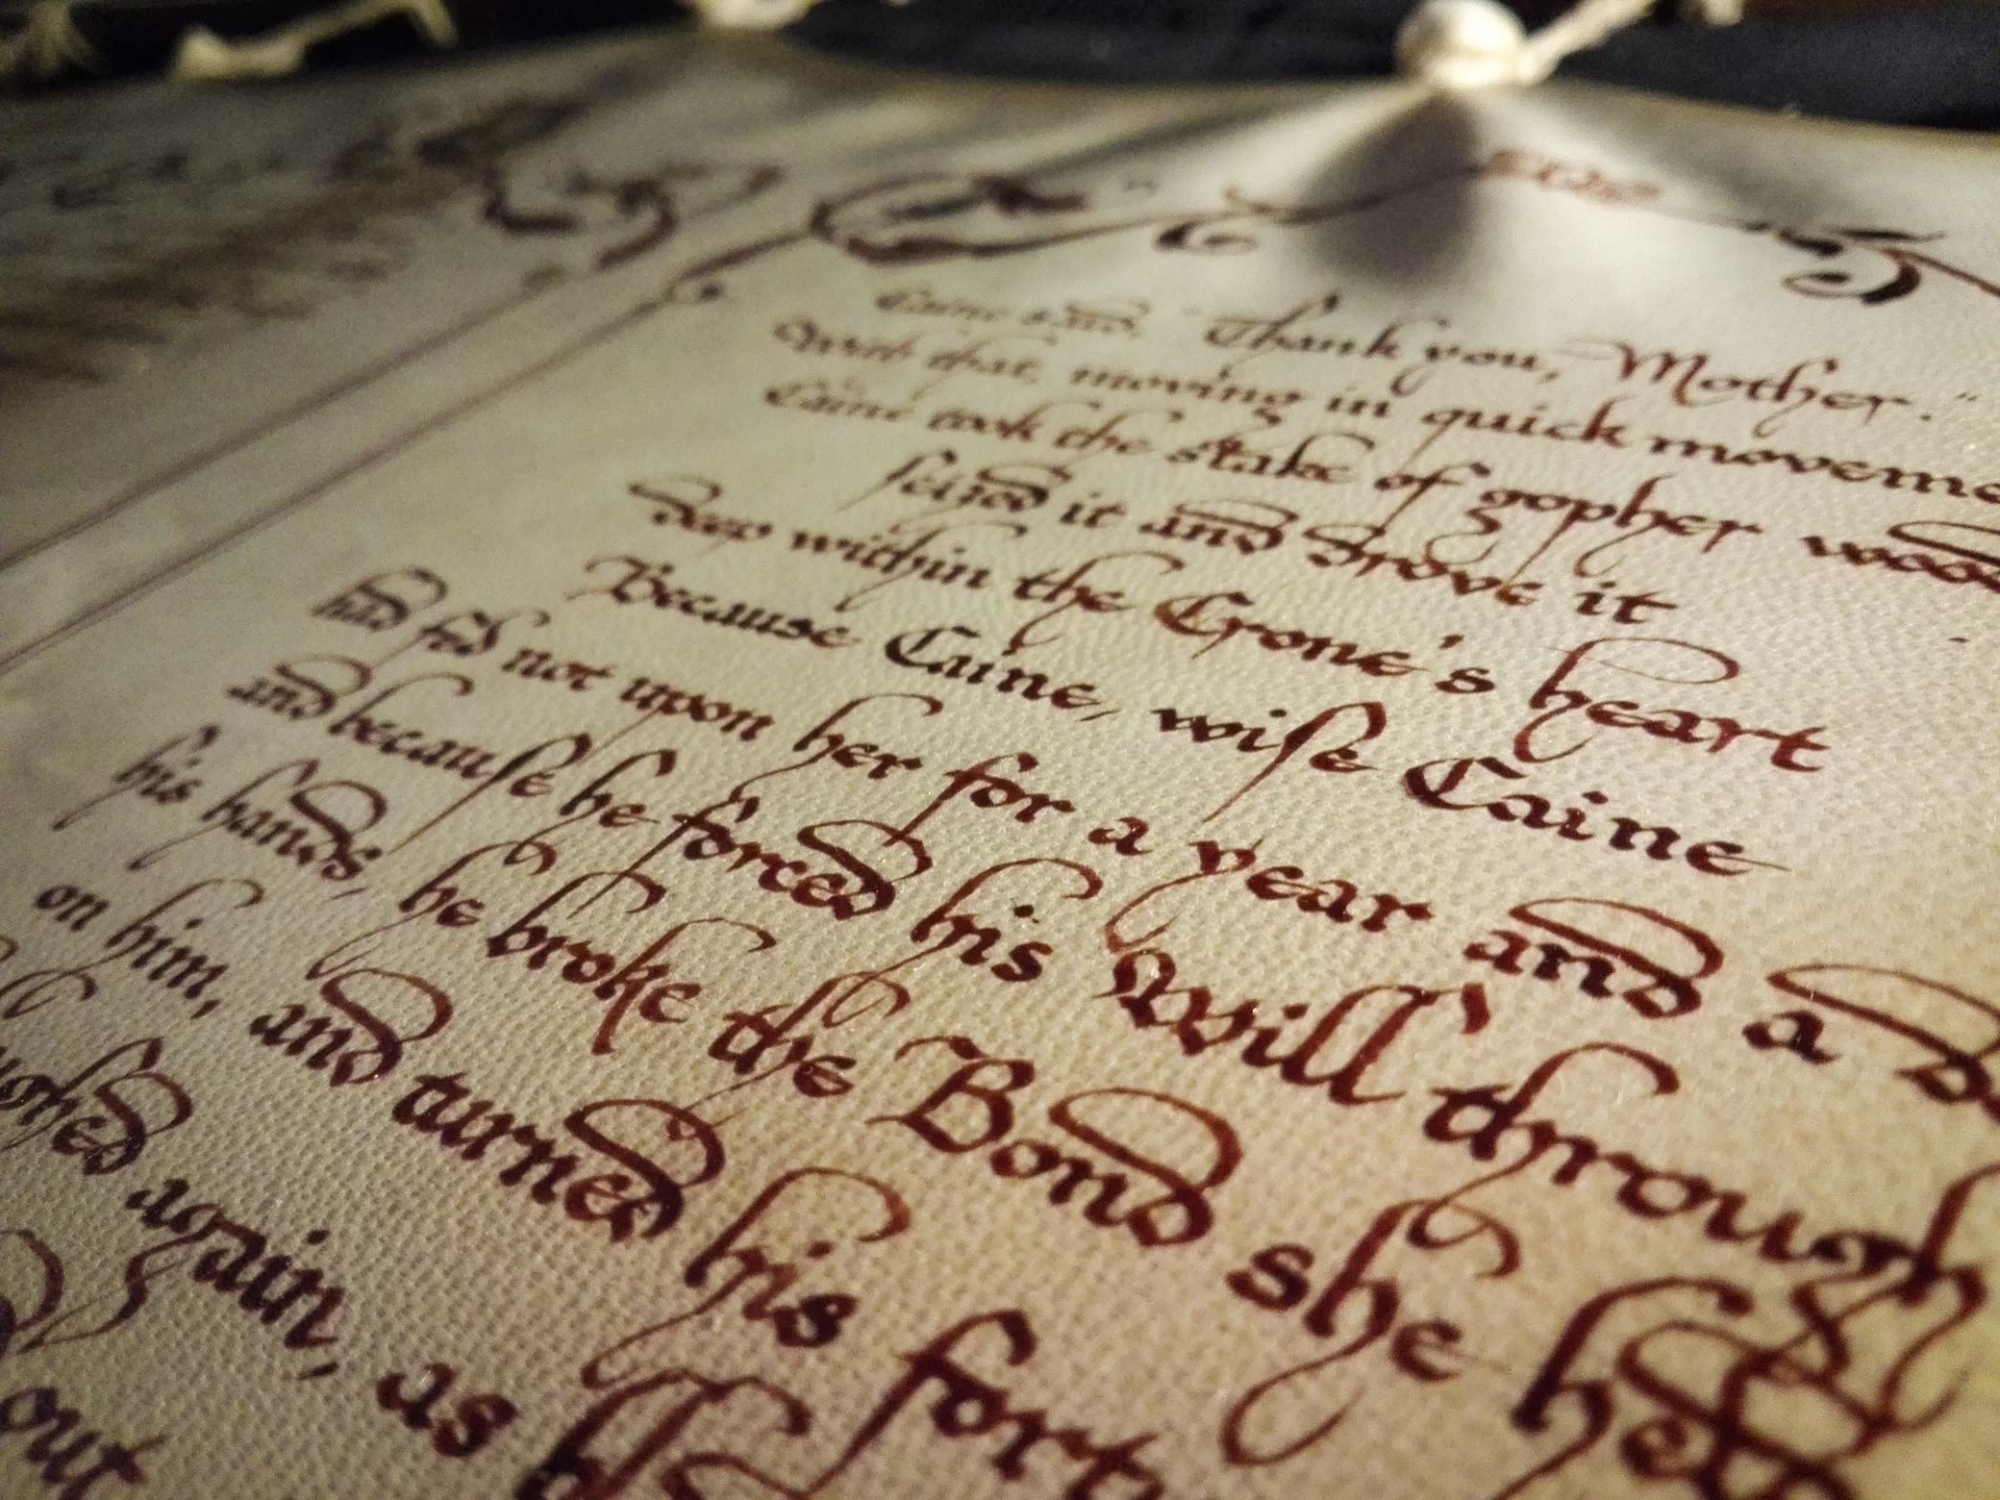 Caine said, "Thank you, Mother."
With that, moving in quick moveme
Caine took the stake of gopher wood
seized it and drove it
deep within the Crone's heart
Because Caine, wiſe Caine
had fed not upon her for a year and a
and becauſe he forced his Will through
his hands, he broke the Bond she held
on him, and turned his fort
again, as
out